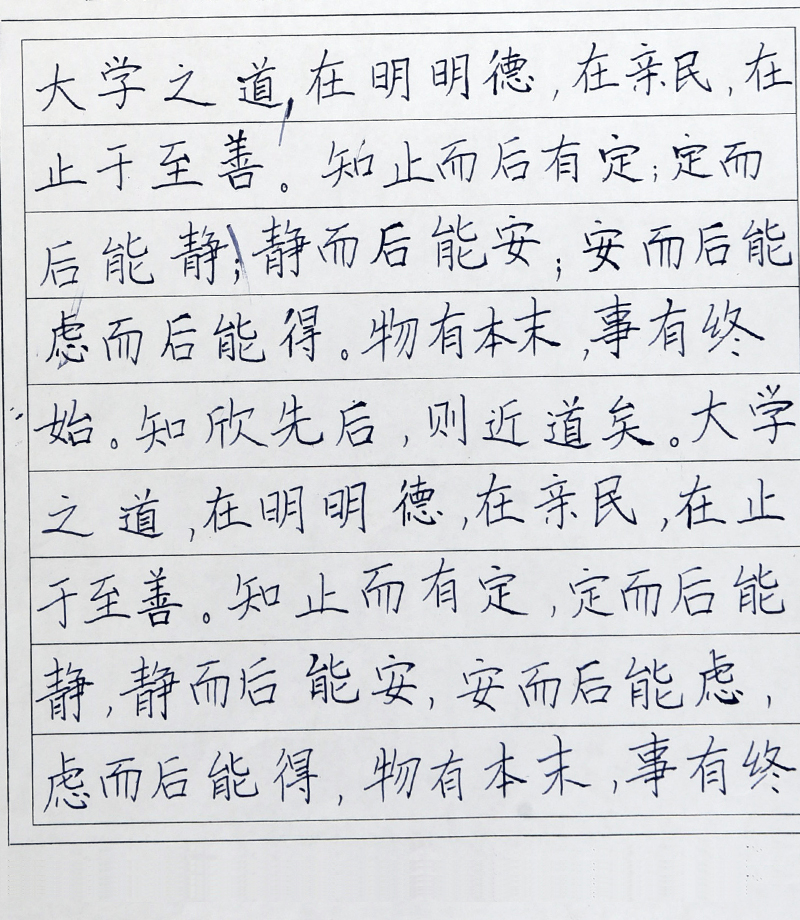 大学之道,在明明德,在亲民,在
止于至善。知止而后有定;定而
后能静;静而后能安;安而后能
虑而后能得。物有本末,事有终
始。知欣先后,则近道矣。大学
之道,在明明德,在亲民,在止
于至善。知止而有定,定而后能
静,静而后能安,安而后能虑,
虑而后能得,物有本末,事有终